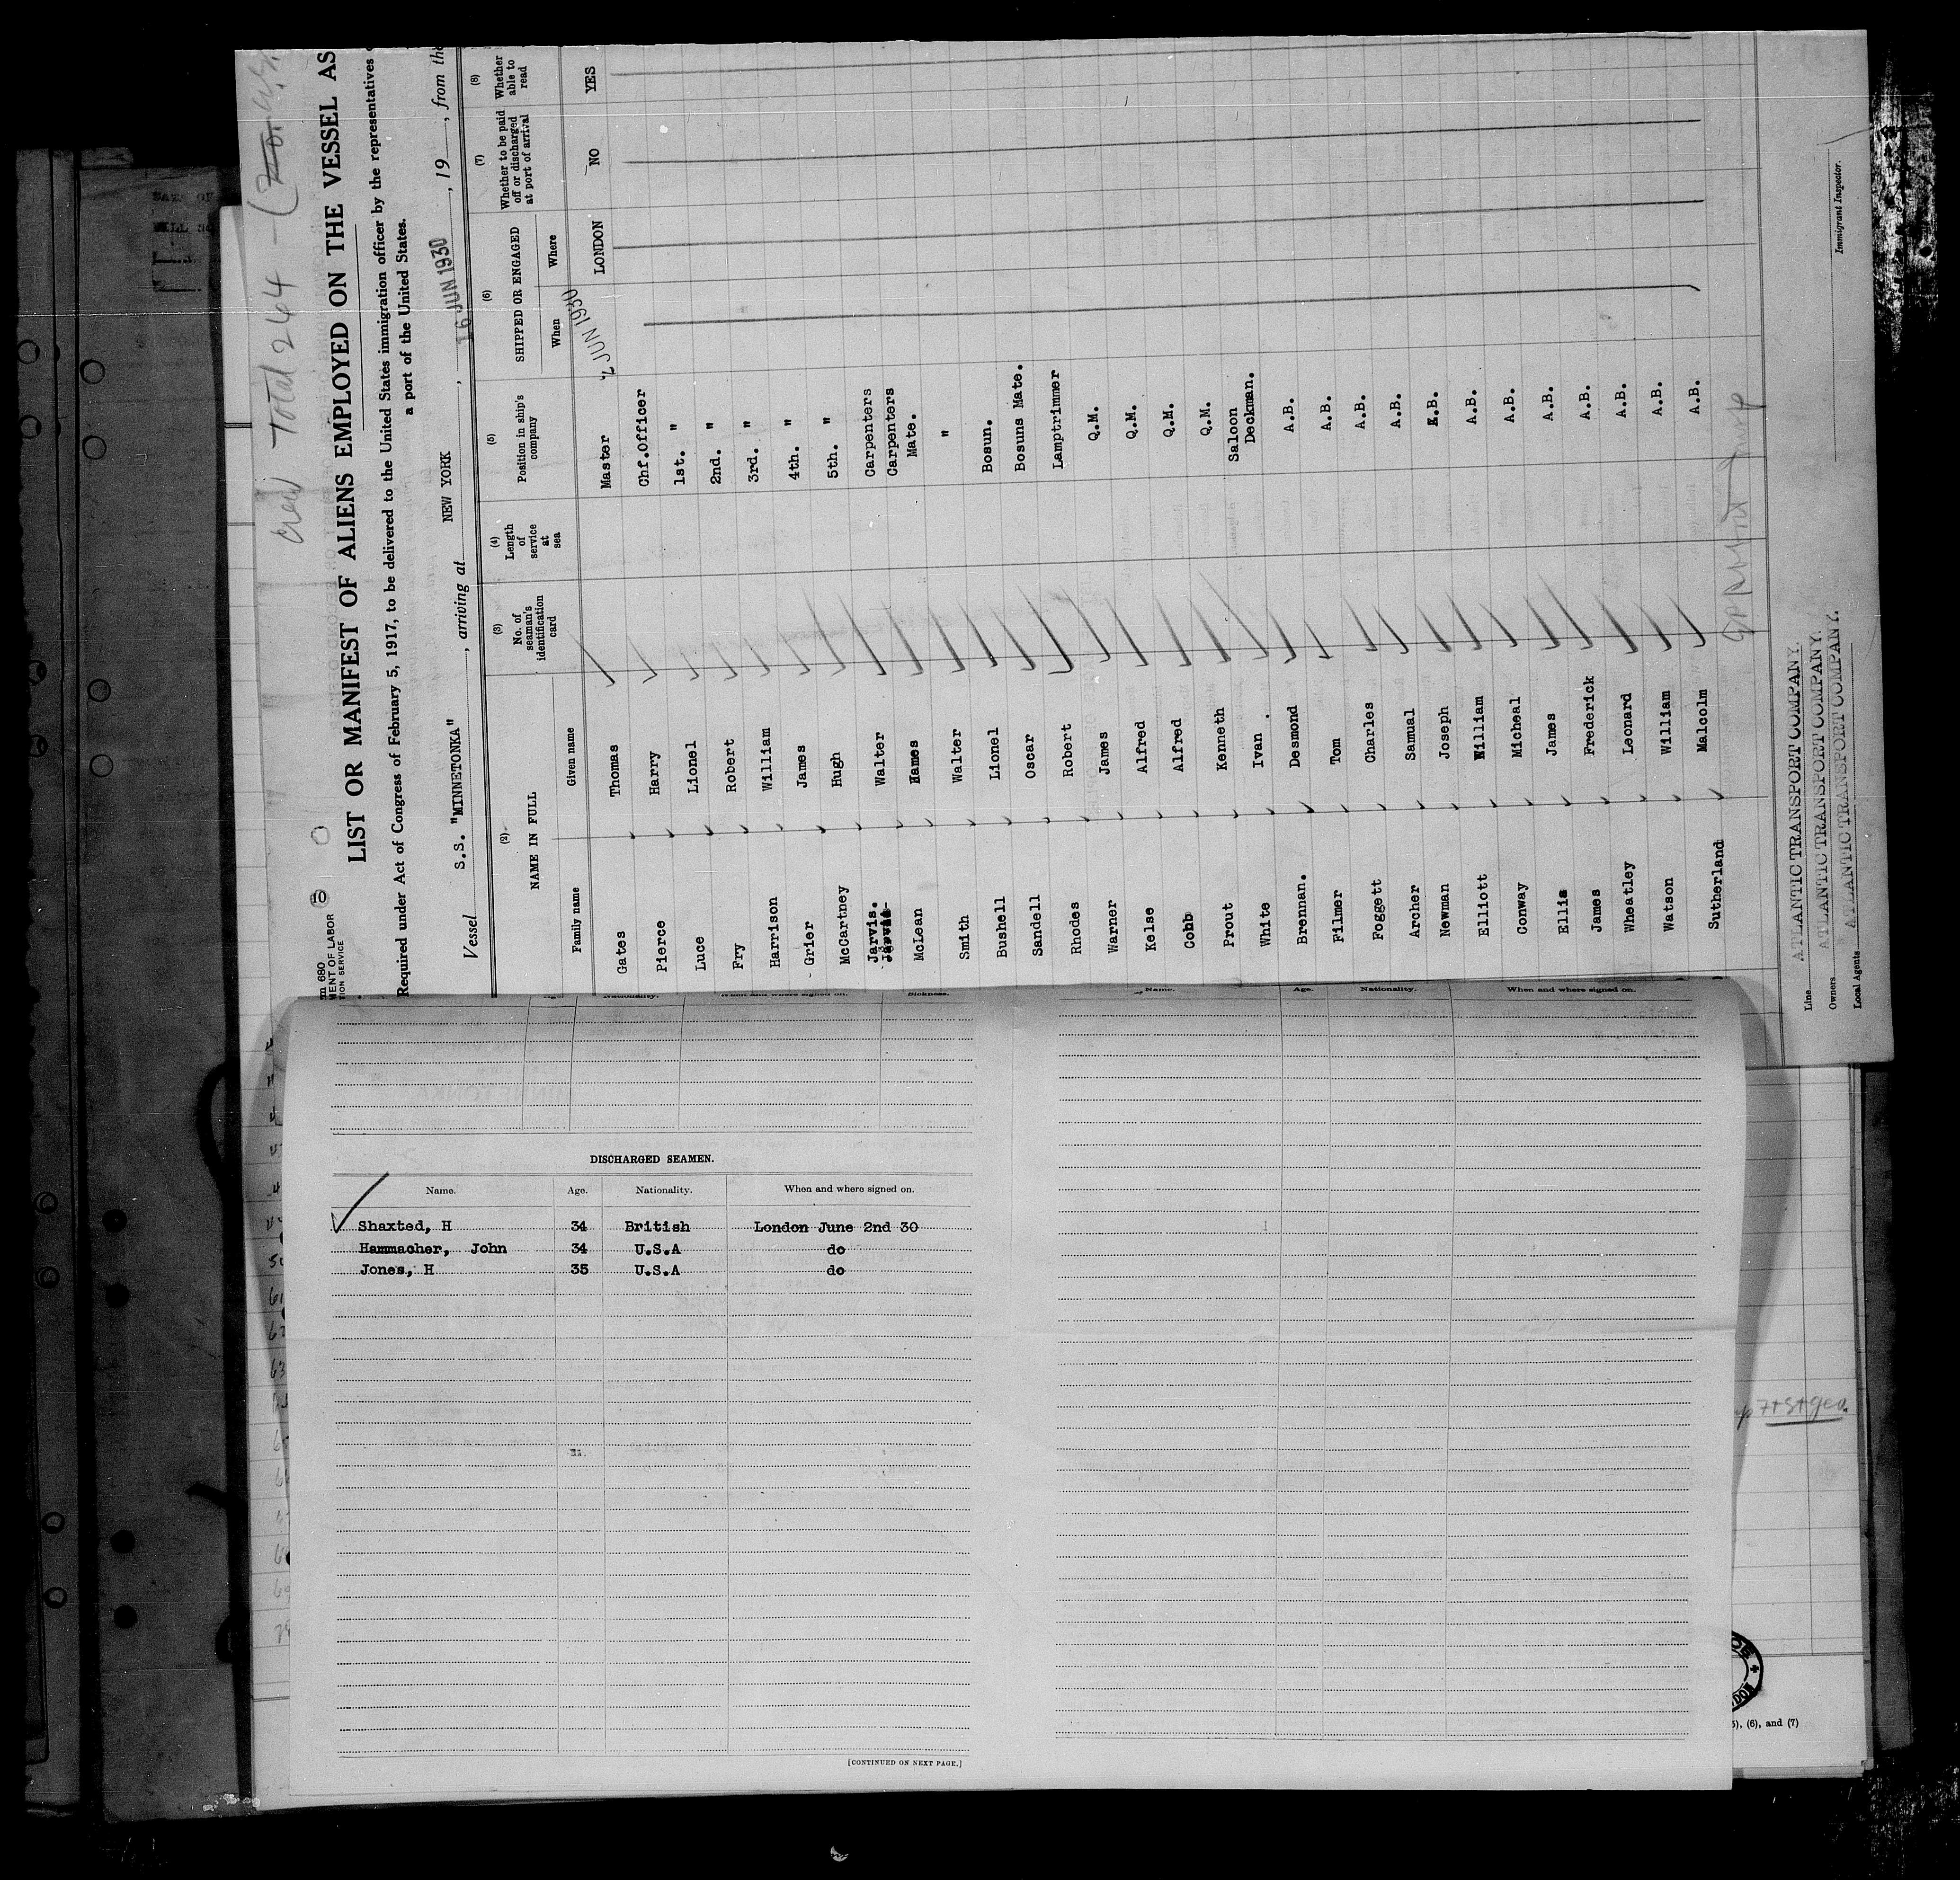 Crew Total 264
Form 680
DEPARTMENT OF LABOR
IMMIGRATION SERVICE
10
LIST OR MANIFEST OF ALIENS EMPLOYED ON THE VESSEL AS
Required under Act of Congress of February 5, 1917, to be delivered to the United States immigration officer by the representatives
a port of the United States.
Vessel S.S. "MINNETONKA", arriving at NEW YORK, 16 JUN 1930, 19 , from the
(2) NAME IN FULL (3) No. of seaman's identification card (4) Length of service at sea (5) Position in ship's company (6) SHIPPED OR ENGAGED (7) Whether to be paid off or discharged at port of arrival (8) Whether able to read
Family name Given name When Where
Gates Thomas Master 2 JUN 1930 LONDON NO YES
Pierce Harry Chf.Officer
Luce Lionel 1st. "
Fry Robert 2nd. "
Harrison William 3rd. "
Grier James 4th. "
McCartney Hugh 5th. "
Jarvis. Walter Carpenters
McLean James Carpenters Mate.
Smith Walter "
Bushell Lionel Bosun.
Sandell Oscar Bosuns Mate.
Rhodes Robert Lamptrimmer
Warner James Q.M.
Kelse Alfred Q.M.
Cobb Alfred Q.M.
Prout Kenneth Q.M.
White Ivan . Saloon Deckman.
Brennan. Desmond A.B.
Filmer Tom A.B.
Foggett Charles A.B.
Archer Samual A.B.
Newman Joseph A.B.
Elliott William A.B.
Conway Micheal A.B.
Ellis James A.B.
James Frederick A.B.
Wheatley Leonard A.B.
Watson William A.B.
Sutherland Malcolm A.B.
Line ATLANTIC TRANSPORT COMPANY.
Owners ATLANTIC TRANSPORT COMPANY.
Local Agents ATLANTIC TRANSPORT COMPANY.
Immigrant Inspector.
Age. Nationality. When and where signed on. Sickness.
Name. Age. Nationality. When and where signed on.
DISCHARGED SEAMEN.
Name. Age. Nationality. When and where signed on.
Shaxted, H 34 British London June 2nd 30
Hammacher, John 34 U.S.A do
Jones, H 35 U.S.A do
[CONTINUED ON NEXT PAGE.]
(6), and (7)